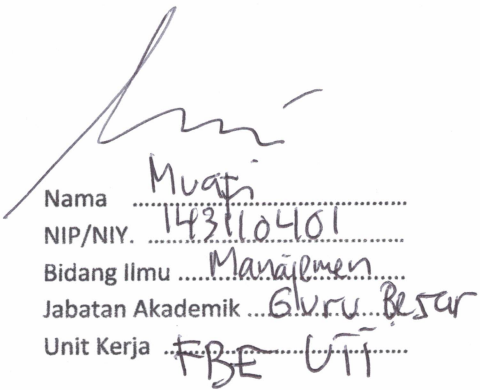 Nama Muafi
NIP/NIY. 143110401
Bidang Ilmu Manajemen
Jabatan Akademik Guru Besar
Unit Kerja FBE UII